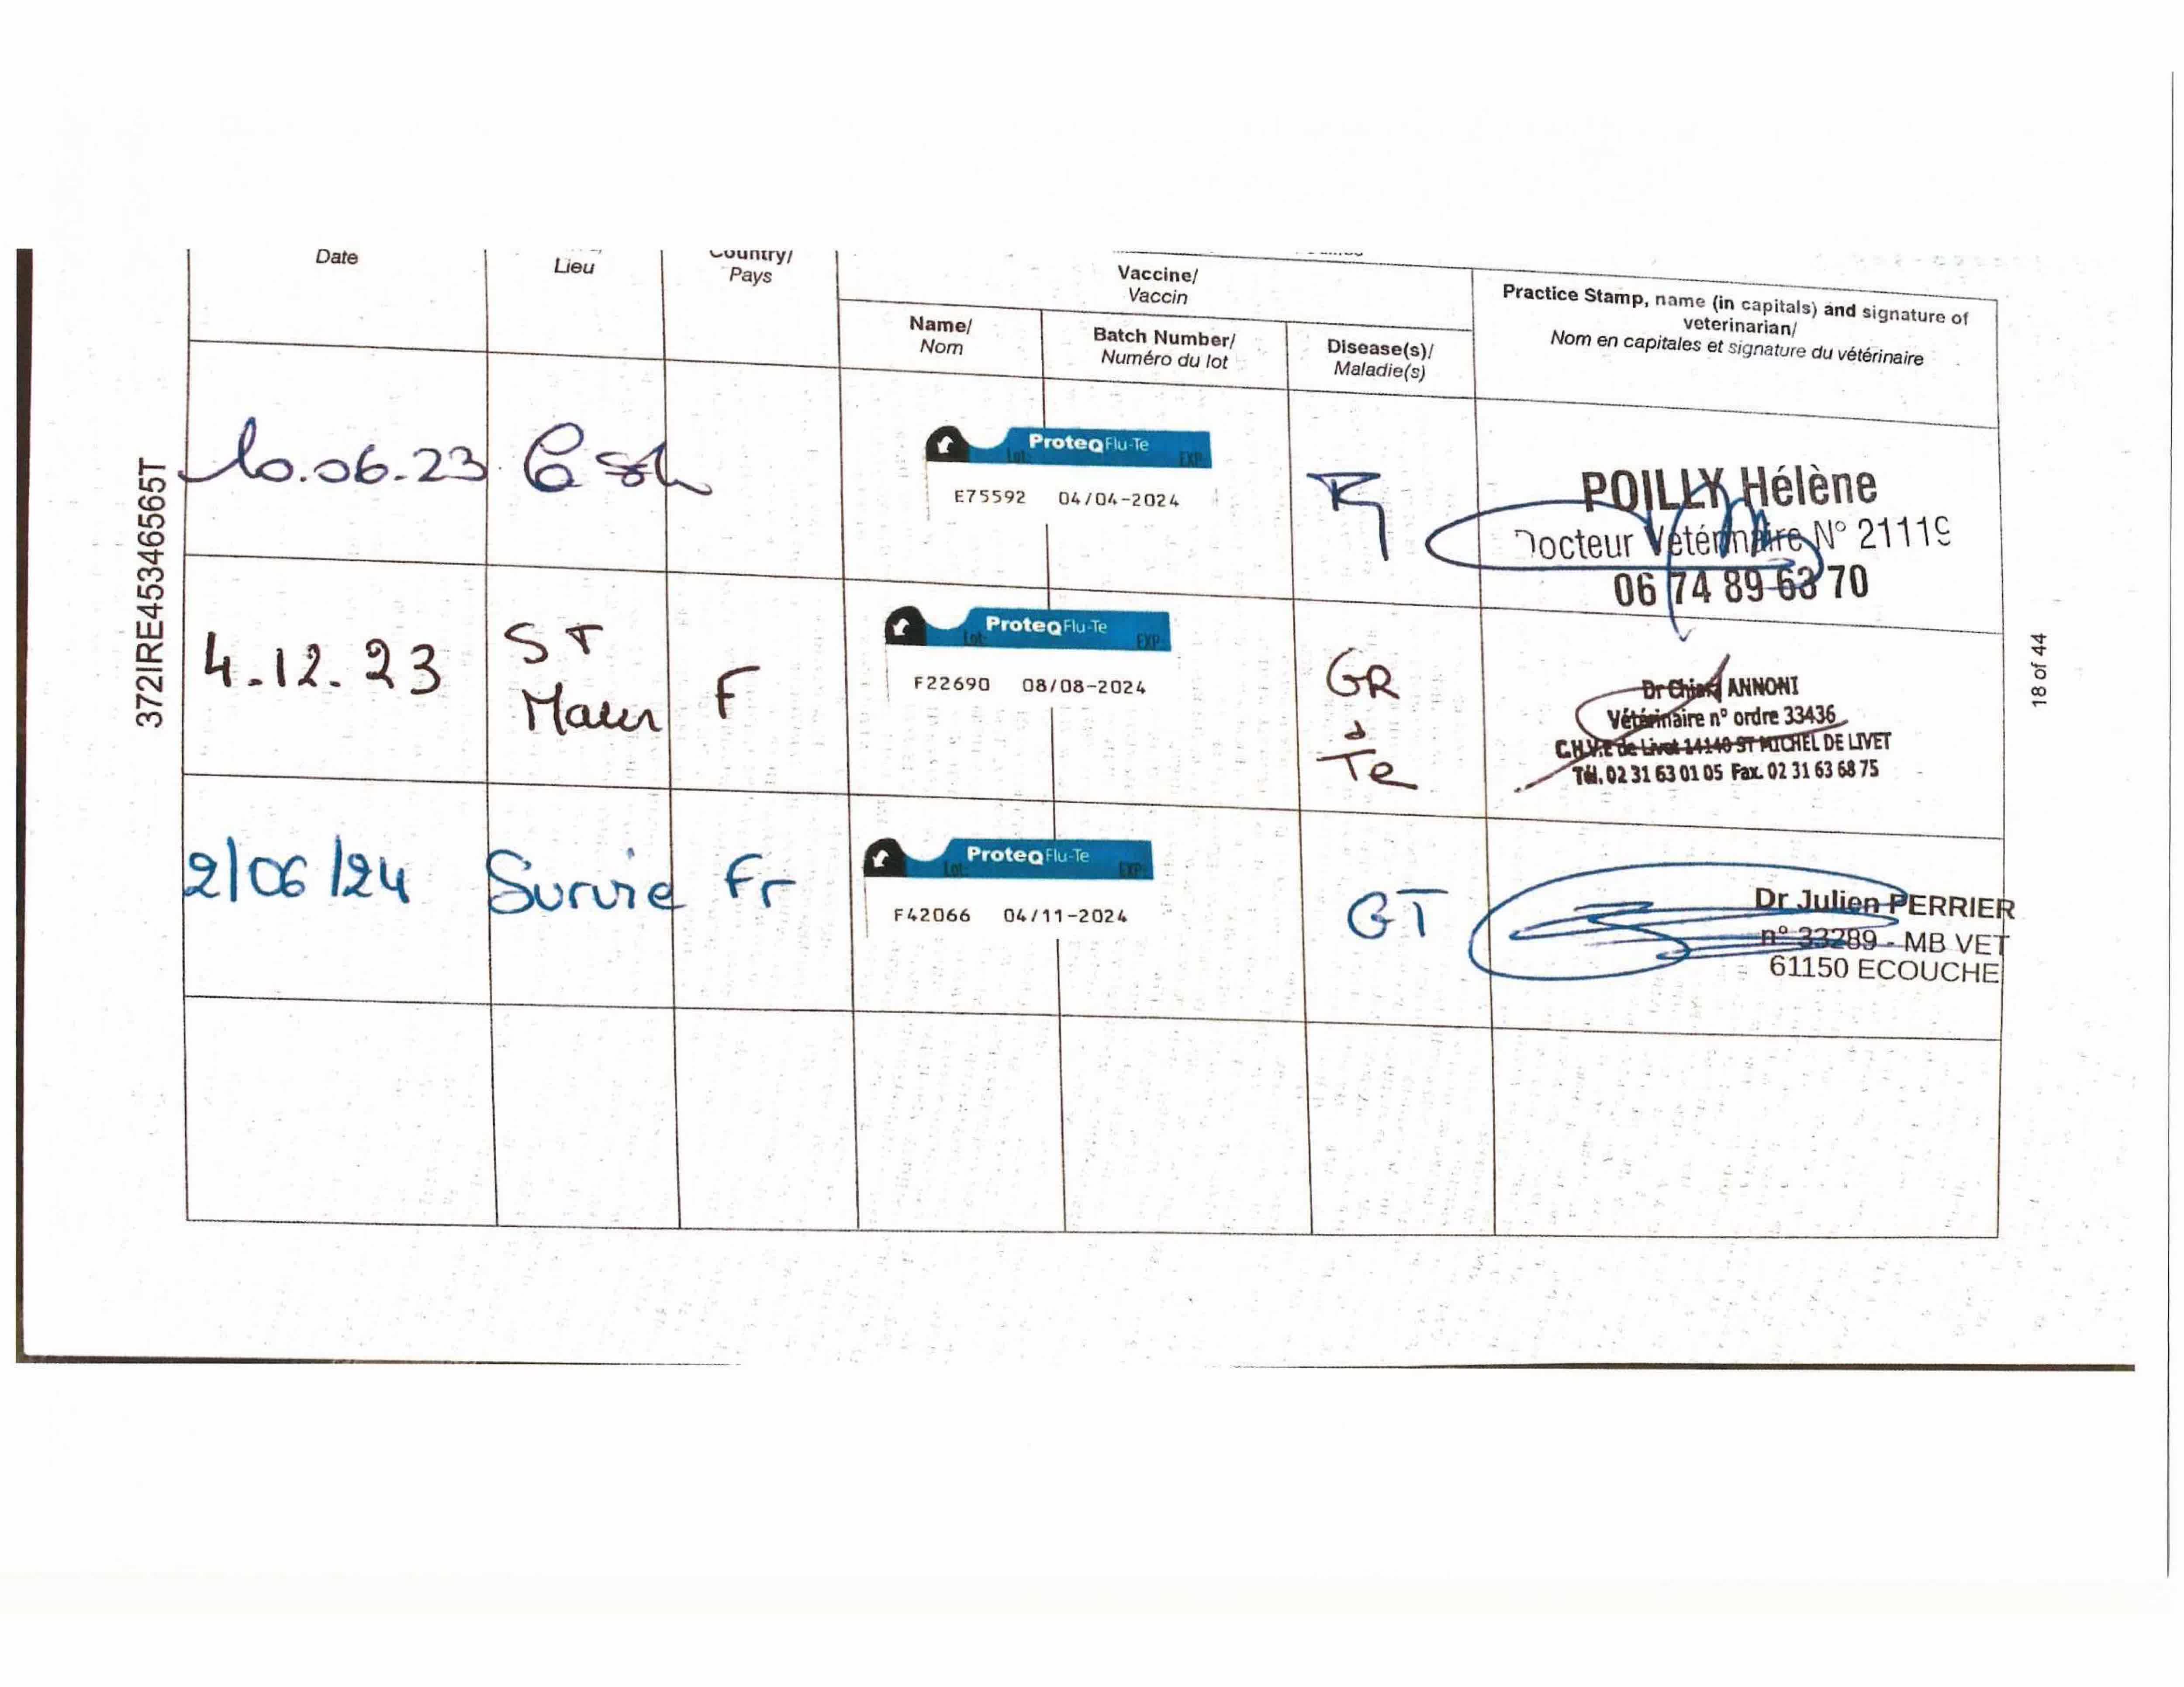 Date
Lieu
Country/
Pays
Vaccine/
Vaccin
Name/
Nom
Batch Number/
Numéro du lot
Disease(s)/
Maladie(s)
Practice Stamp, name (in capitals) and signature of
veterinarian/
Nom en capitales et signature du vétérinaire
372IRE45346565T
10.06.23
ProteqFlu-Te
Lot: EXP:
E75592 04/04-2024
POILLY Hélène
Docteur Vétérinaire N° 21119
06 74 89 63 70
4.12.23
ST
Maur
F
ProteqFlu-Te
Lot: EXP:
F22690 08/08-2024
GR
Te
Dr Chiara ANNONI
Vétérinaire n° ordre 33436
C.H.V.E de Livet 14140 ST MICHEL DE LIVET
Tél. 02 31 63 01 05 Fax. 02 31 63 68 75
2/06/24
Survie
Fr
ProteqFlu-Te
Lot: EXP:
F42066 04/11-2024
GT
Dr Julien PERRIER
n° 33289 - MB VET
61150 ECOUCHE
18 of 44